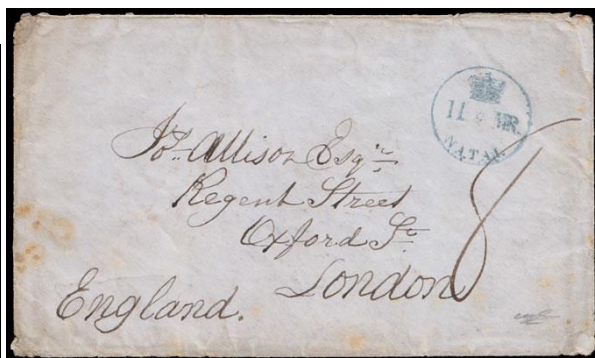 11 MR.
NATAL
Jos. Allison Esqre
Regent Street
Oxford St
London
England.
8